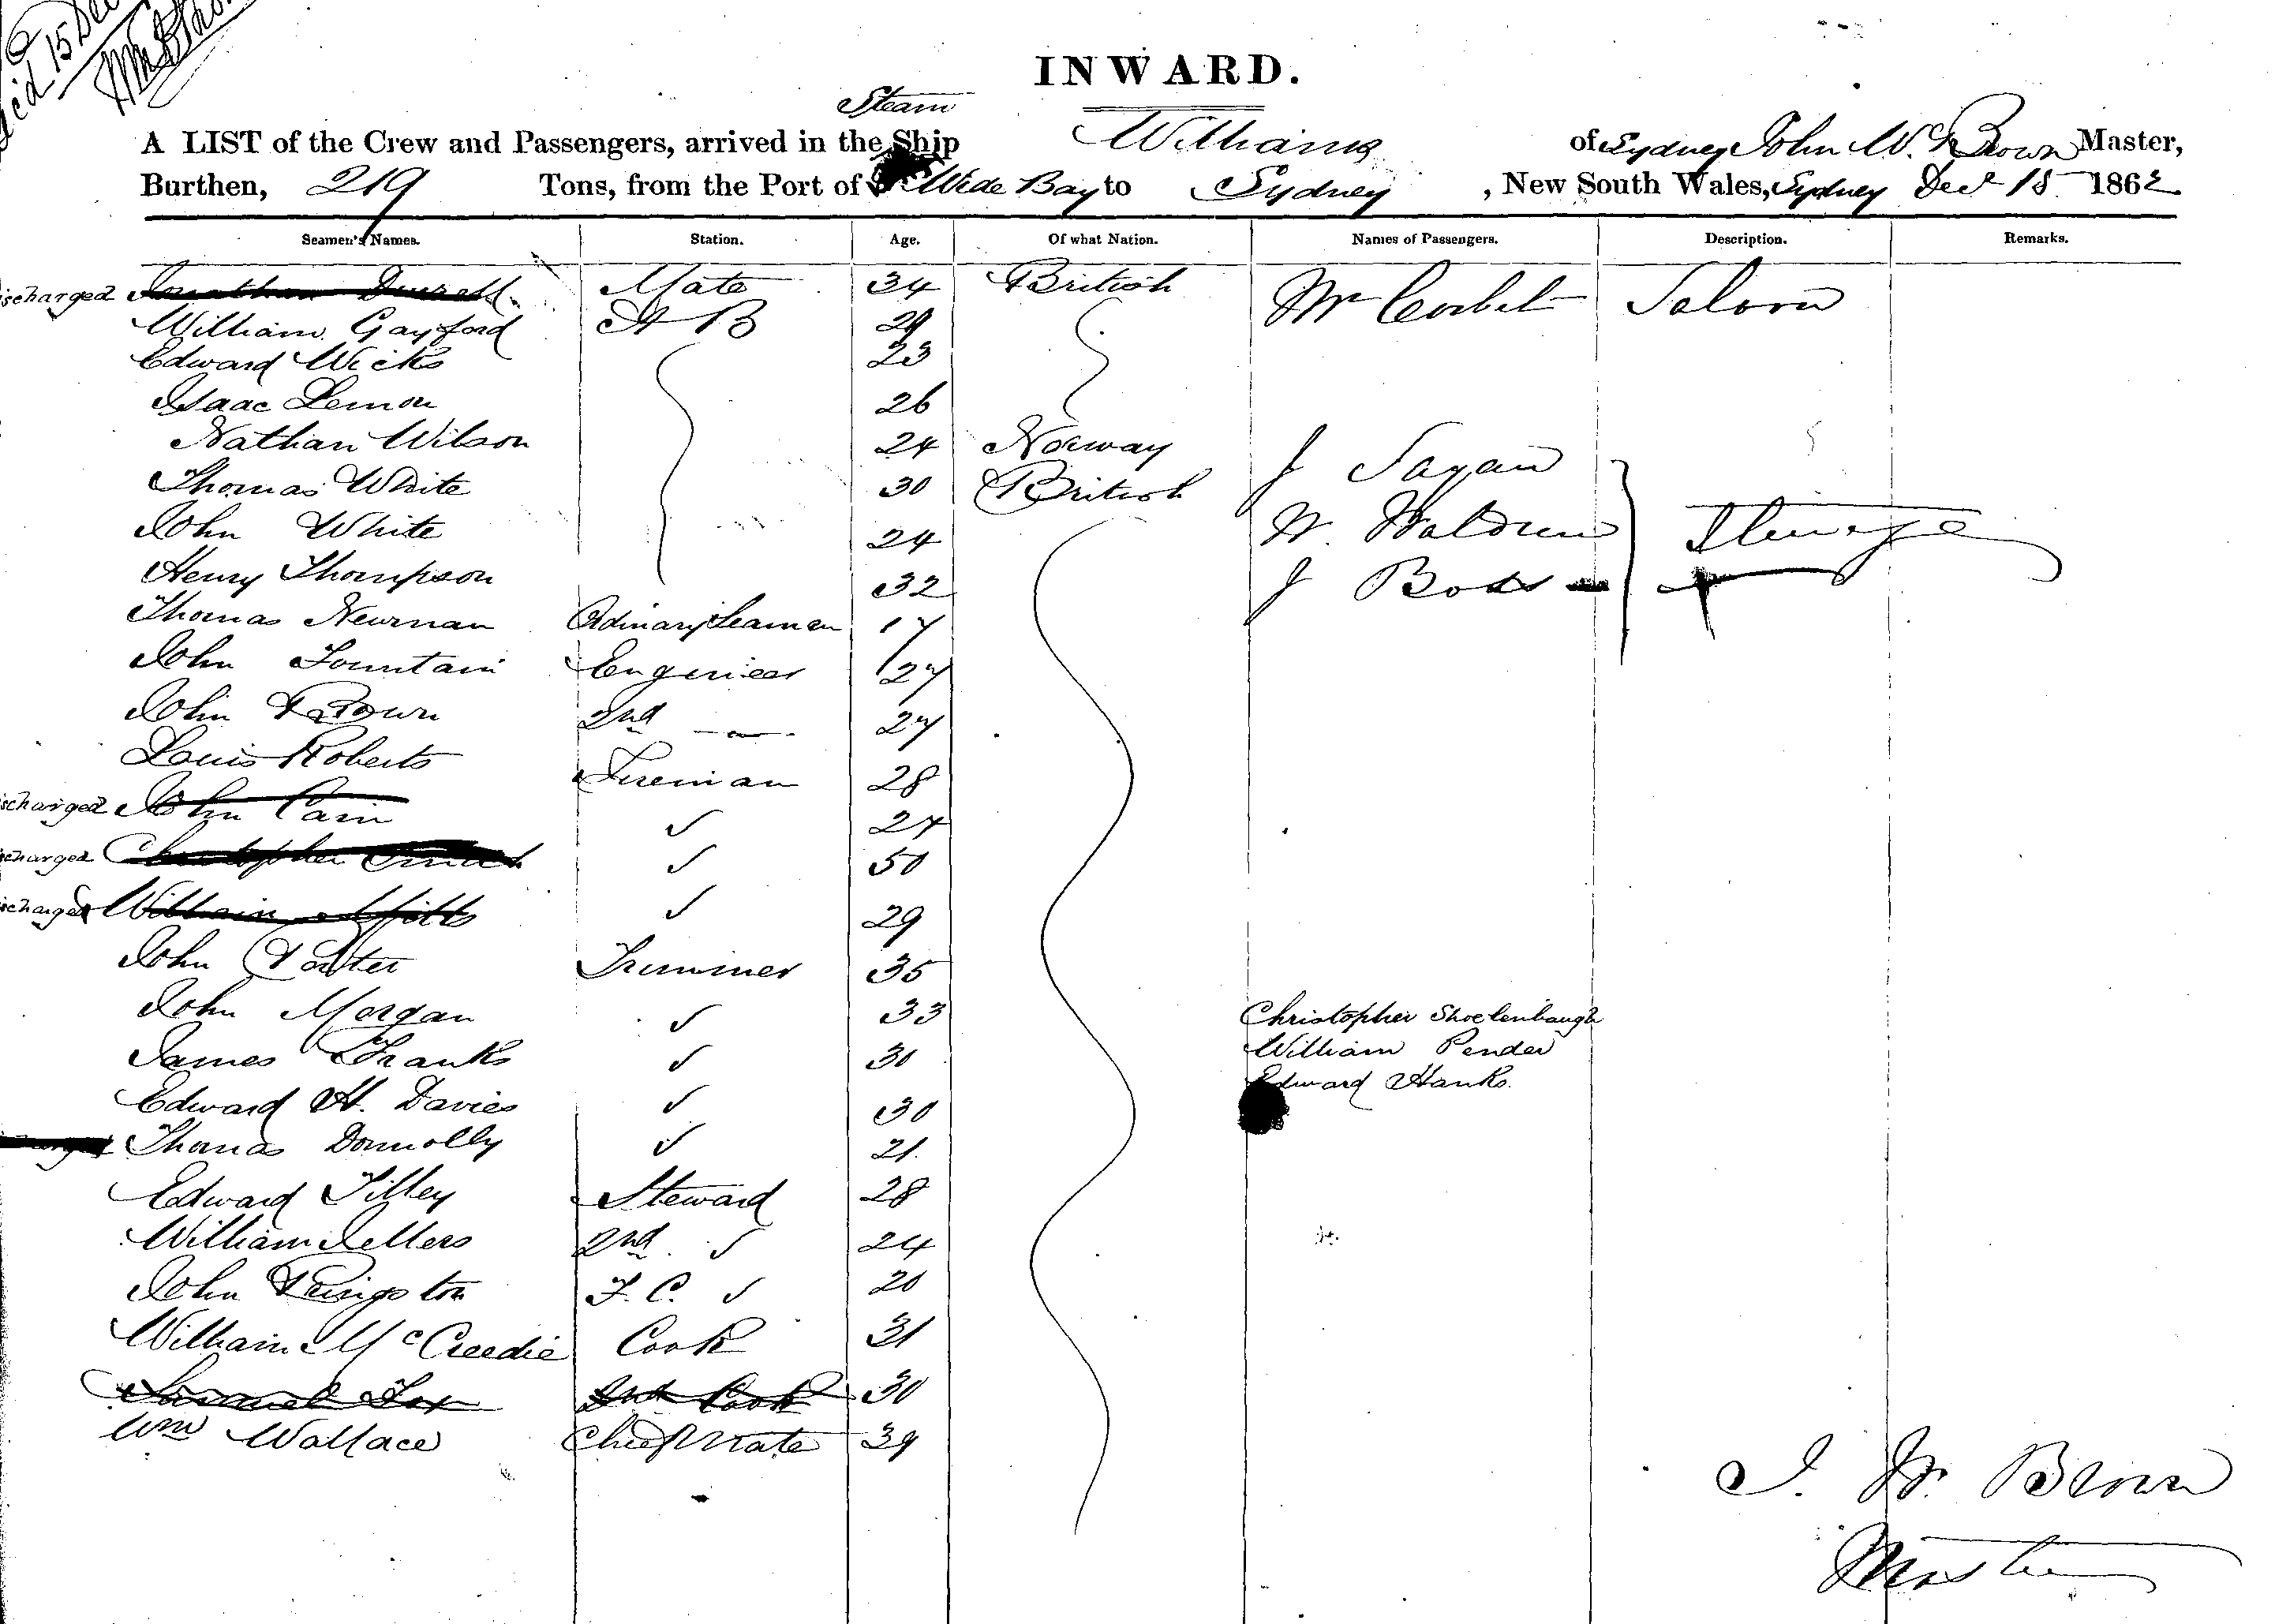 15 Dec
INWARD.
Steam
A LIST of the Crew and Passengers, arrived in the Ship Williams of Sydney John W. Brown Master,
Burthen, 219 Tons, from the Port of Wide Bay to Sydney, New South Wales, Sydney Dec 15 1862
Seamen's Names. Station. Age. Of what Nation. Names of Passengers. Description. Remarks.
ischarged Jonathan Mate 34 British Mr Corbet Saloon
William Gayford A B 29
Edward Wicks 23
Isaac Lemon 26
Nathan Wilson 24 Norway J Sayan
Thomas White 30 British
John White 24 W Waldron Steerage
Henry Thompson 32 J
Thomas Newman Ordinary Seaman 17
John Fountain Engineer 27
John Brown 2nd 27
Louis Roberts Fireman 28
scharged John Cain ✓ 24
charged Christopher Smith ✓ 50
scharged William Mills ✓ 29
John Porter Trimmer 35
John Morgan ✓ 33 Christopher Shoelenbaugh
James Franks ✓ 30 William Pender
Edward Hanks.
Edward H. Davies ✓ 30
Thomas Donnolly ✓ 21
Edward Tilley Steward 28
William Sellers 2nd ✓ 24
John Kingston F. C. ✓ 20
William McCreedie Cook 31
Samuel Fox 2nd Cook 30
Wm Wallace Chief Mate 39
J. W. Brown
Master